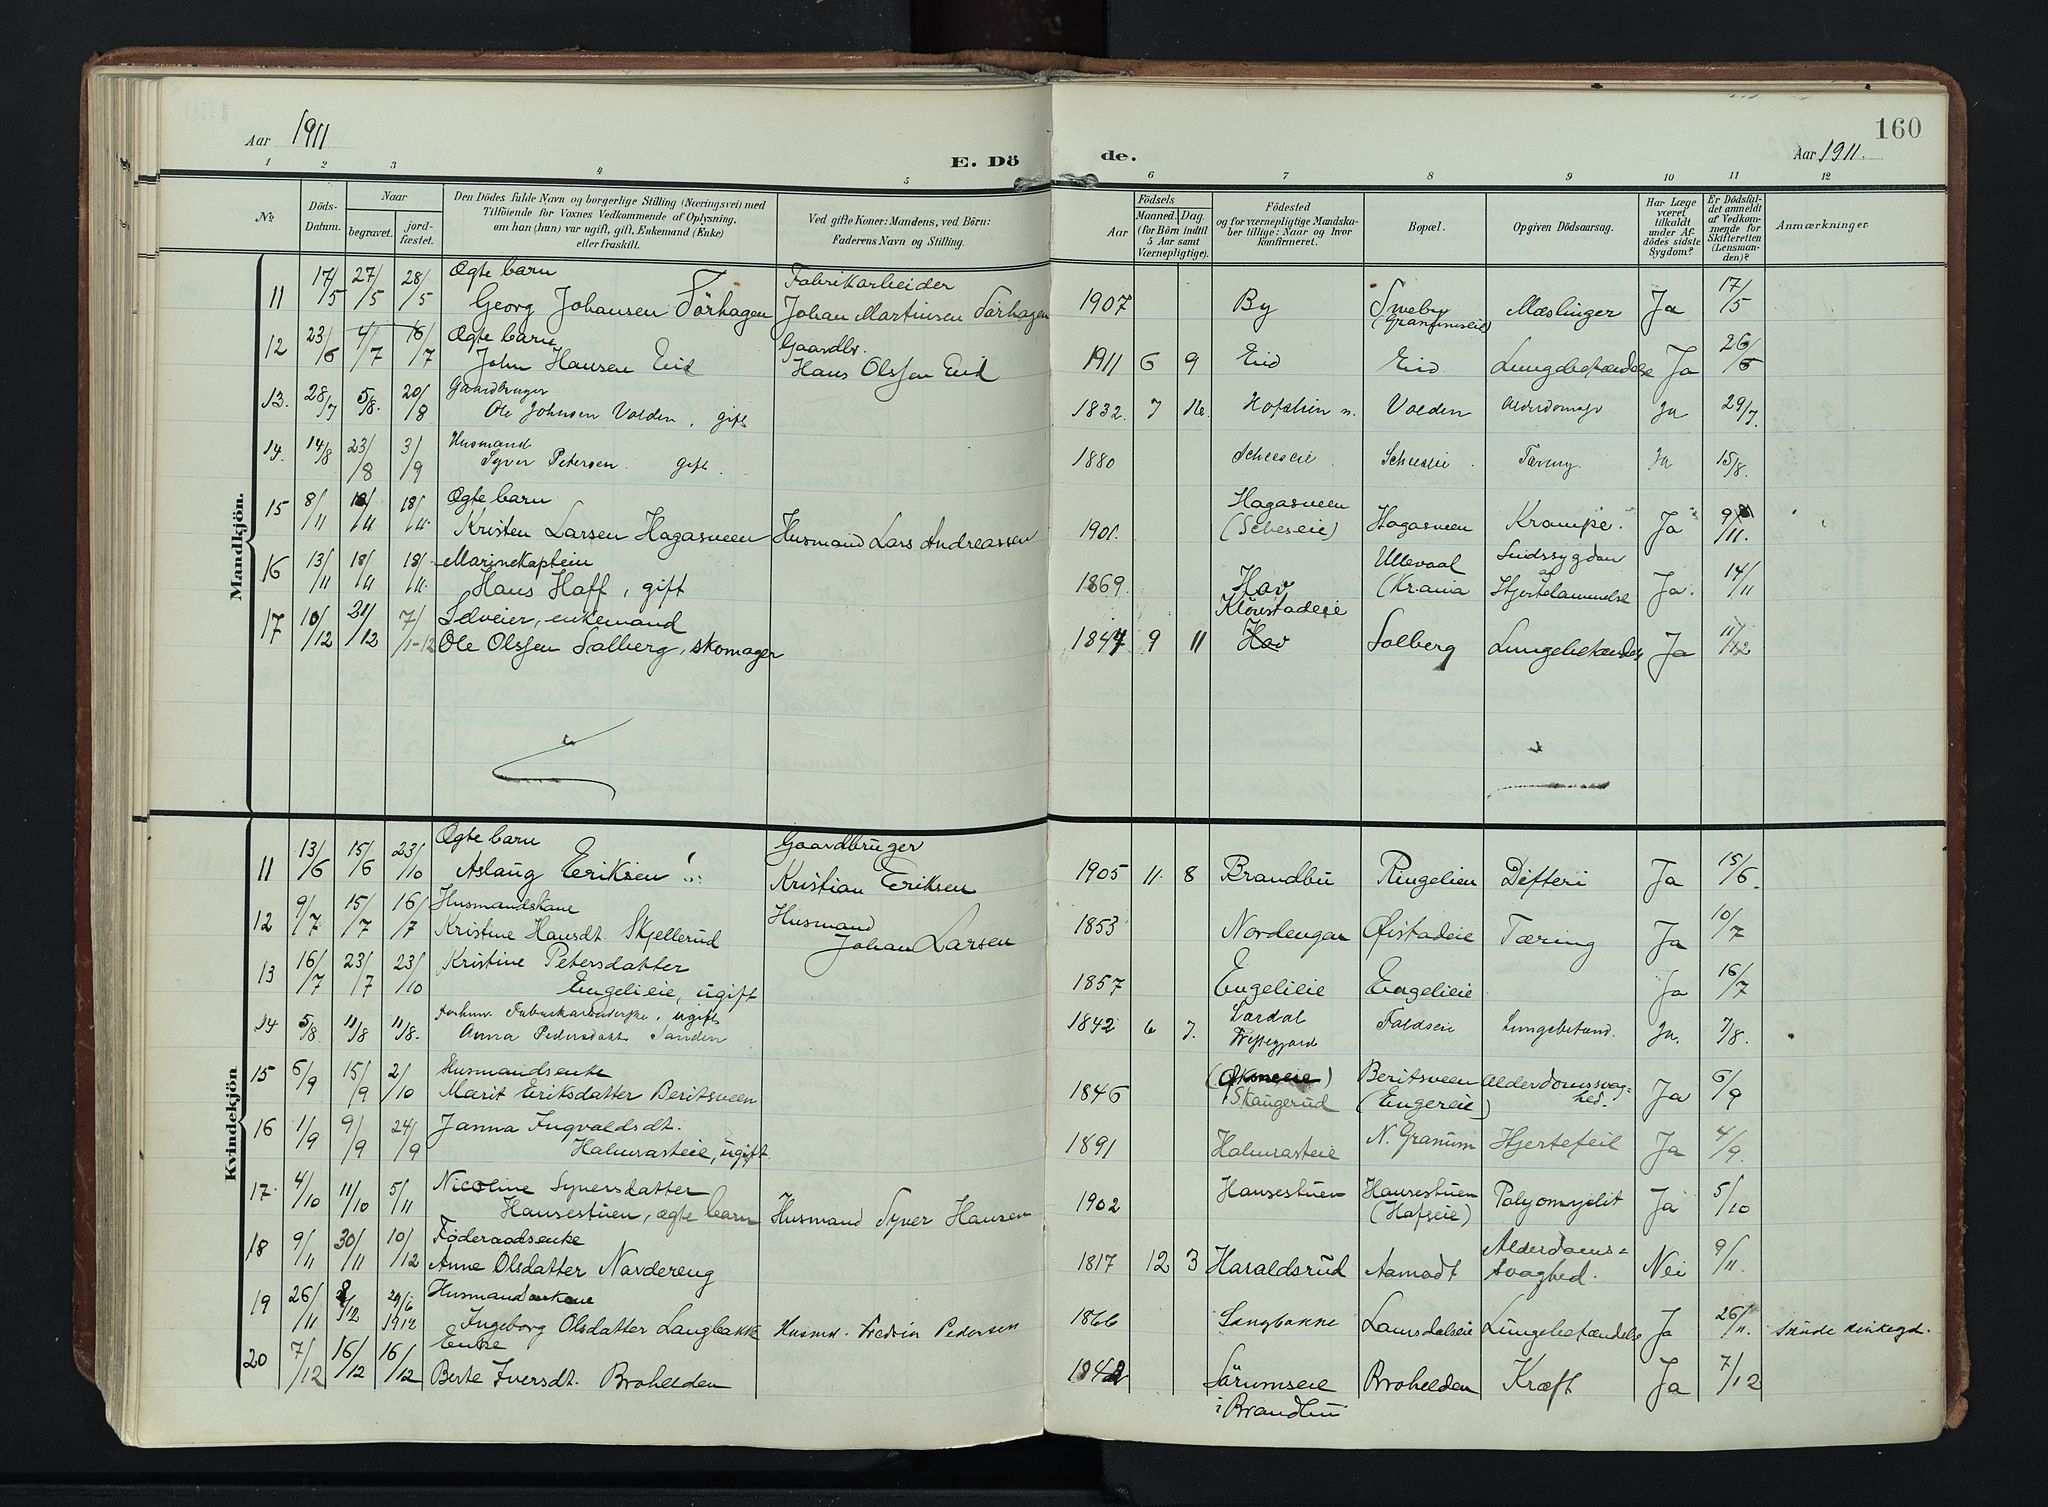 160
Aar 1911
E. Dö
de.
Aar 1911.
1 2 3 4 5 6 7 8 9 10 11 12
No
Döds-Datum.
Naar
begravet.
jord-fæstet.
Den Dödes fulde Navn og borgerlige Stilling (Næringsvei) med
Tilföiende for Voxnes Vedkommende af Oplysning,
om han (hun) var ugift, gift, Enkemand (Enke)
eller fraskilt.
Ved gifte Koner: Mandens, ved Börn:
Faderens Navn og Stilling.
Födsels
Aar
Maaned. Dag.
(for Börn indtil
5 Aar samt
Værnepligtige).
Födested
og for værnepligtige Mandska-
ber tillige: Naar og hvor
konfirmeret.
Bopæl.
Opgiven Dödsaarsag.
Har Læge
været
tilkaldt
under Af-
dödes sidste
Sygdom?
Er Dödsfal-
det anmeldt
af Vedkom-
mende for
Skifteretten
(Lensman-
den)?
Anmærkninger
Mandkjön.
11 17/5 27/5 28/5 Ægte barn Fabrikarbeider
Georg Johansen Törhagen Johan Martinsen Törhagen 1907 By Sveby (Granumseie) Mæslinger Ja 17/5
12 23/6 4/7 16/7 Ægte barn Gaardbr.
John Hansen Eid Hans Olssen Eid 1911 6 9 Eid Eid. Lungebetændelse Ja 26/6
13. 28/7 5/8. 20/8 Gaardbruger
Ole Johnsen Volden, gift 1832. 7 Volden Ja 29/7.
14. 14/8 23/8 3/9 Husmand
Syver Petersen. gift. 1880 Scheeseie. Scheeseie. Tæring. Ja 15/8.
15 8/11 18/11 18/11. Ægte barn
Kristen Larsen Hagasveen Husmand Lars Andreassen 1901. Hagasveen (Scheseie) Hagasveen Krampe. Ja 9/11.
16 13/11 18/11 18/11. Marinekaptein
Hans Haff, gift 1869. Hav Ullevaal (Kr.ania Sindssygdom og Hjertelammelse Ja. 14/11
17 10/12 21/12 7/1-12 Selveier, enkemand
Ole Olssen Solberg, skomager 1847 9 11 Klövstadeie Hav Solberg Lungebetændels Ja 11/12
Kvindekjön
11 13/6 15/6 23/10 Ægte barn Gaardbruger
Aslaug Eriksen Kristian Eriksen 1905 11. 8 Brandbu Ringelien Difteri Ja 15/6.
12 9/7 15/7 16/7 Husmandskone Husmand
Kristine Hansdt. Skjellerud Johan Larsen 1853 Nordengen Øistadeie Tæring Ja 10/7
13 16/7 23/7 23/10 Kristine Petersdatter
Engelieie, ugift 1857 Engelieie Engelieie Ja 16/7
14 5/8 11/8 11/8. Fabrikarbeiderske, ugift
Anna Pedersdatt. Sanden 1842 6 7. Faldseie Lungebetænd. Ja. 7/8.
15 6/9 15/9 2/10 Husmandsenke
Marit Eriksdatter Beritsveen 1846 Skaugerud Beritsveen (Engereie) Alderdomssvag-hed. Ja 6/9
16 1/9 9/9 24/9 Janna Ingvaldsdt.
Halmrasteie, ugift. 1891 Halmrasteie N. Granum Hjertefeil Ja 4/9.
17. 4/10 11/10 5/11 Nicoline Syversdatter
Hansestuen, ægte barn Husmand Syver Hansen 1902 Hansestuen Hansestuen (Hafseie) Polyomyelit Ja 5/10
18 9/11 30/11 10/12 Føderaadsenke
Anne Olsdatter Nordereng 1817 12 3 Haraldsrud Aamodt Alderdoms-svaghed. Nei 9/11.
19 26/11 8/12 29/6 1912 Husmandskone
Ingeborg Olsdatter Langbakk Husm. Fredrik Pedersen 1866 Langbakke Lamsdalseie Lungebetændelse Ja 26/11.
20 7/12 16/12 16/12 Enke
Berte Iversdt. Brohelden 1842 Sörumseie i Brandbu Brohelden Kræft Ja 7/12